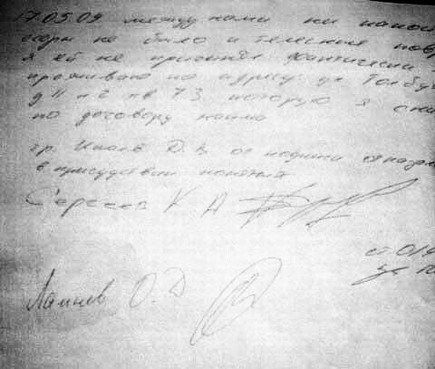 17.05.09 между нами ни какой
ссоры не было и телесных повр
я ей не причинял фактически
проживаю по адресу ул Толбу
д 11 к 2 кв 73. которую я сни
по договору найма
гр. Д. В от подписи отказал
в присудствии понятых
Сергеев К А
Лаптев О. Д